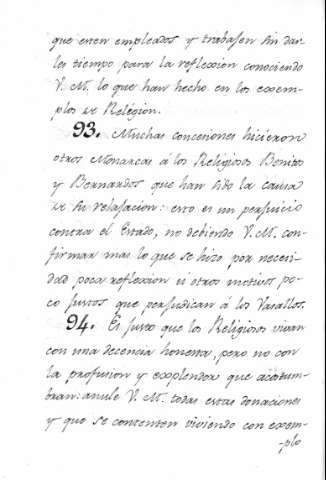 que esten empleados y trabasen sin dar
les tiempo para la reflexion conociendo
V. M. lo que han hecho en los exem-
plos de Religion.
93. Muchas concesiones hicieron
otros Monarcas á los Religiosos Benitos
y Bernardos que han sido la causa
de su relajacion: esto es un perjuicio
contra el Estado, no debiendo V. M. con-
firmar mas lo que se hizo por necesi-
dad poca reflexion ú otros motivos po-
co justos que perjudican á los Vasallos.
94. Es justo que los Religiosos vivan
con una decencia honesta, pero no con
la profusion y explendor que acostum-
bran: anule V. M. todas estas donaciones
y que se contenten viviendo con exem-
-plo